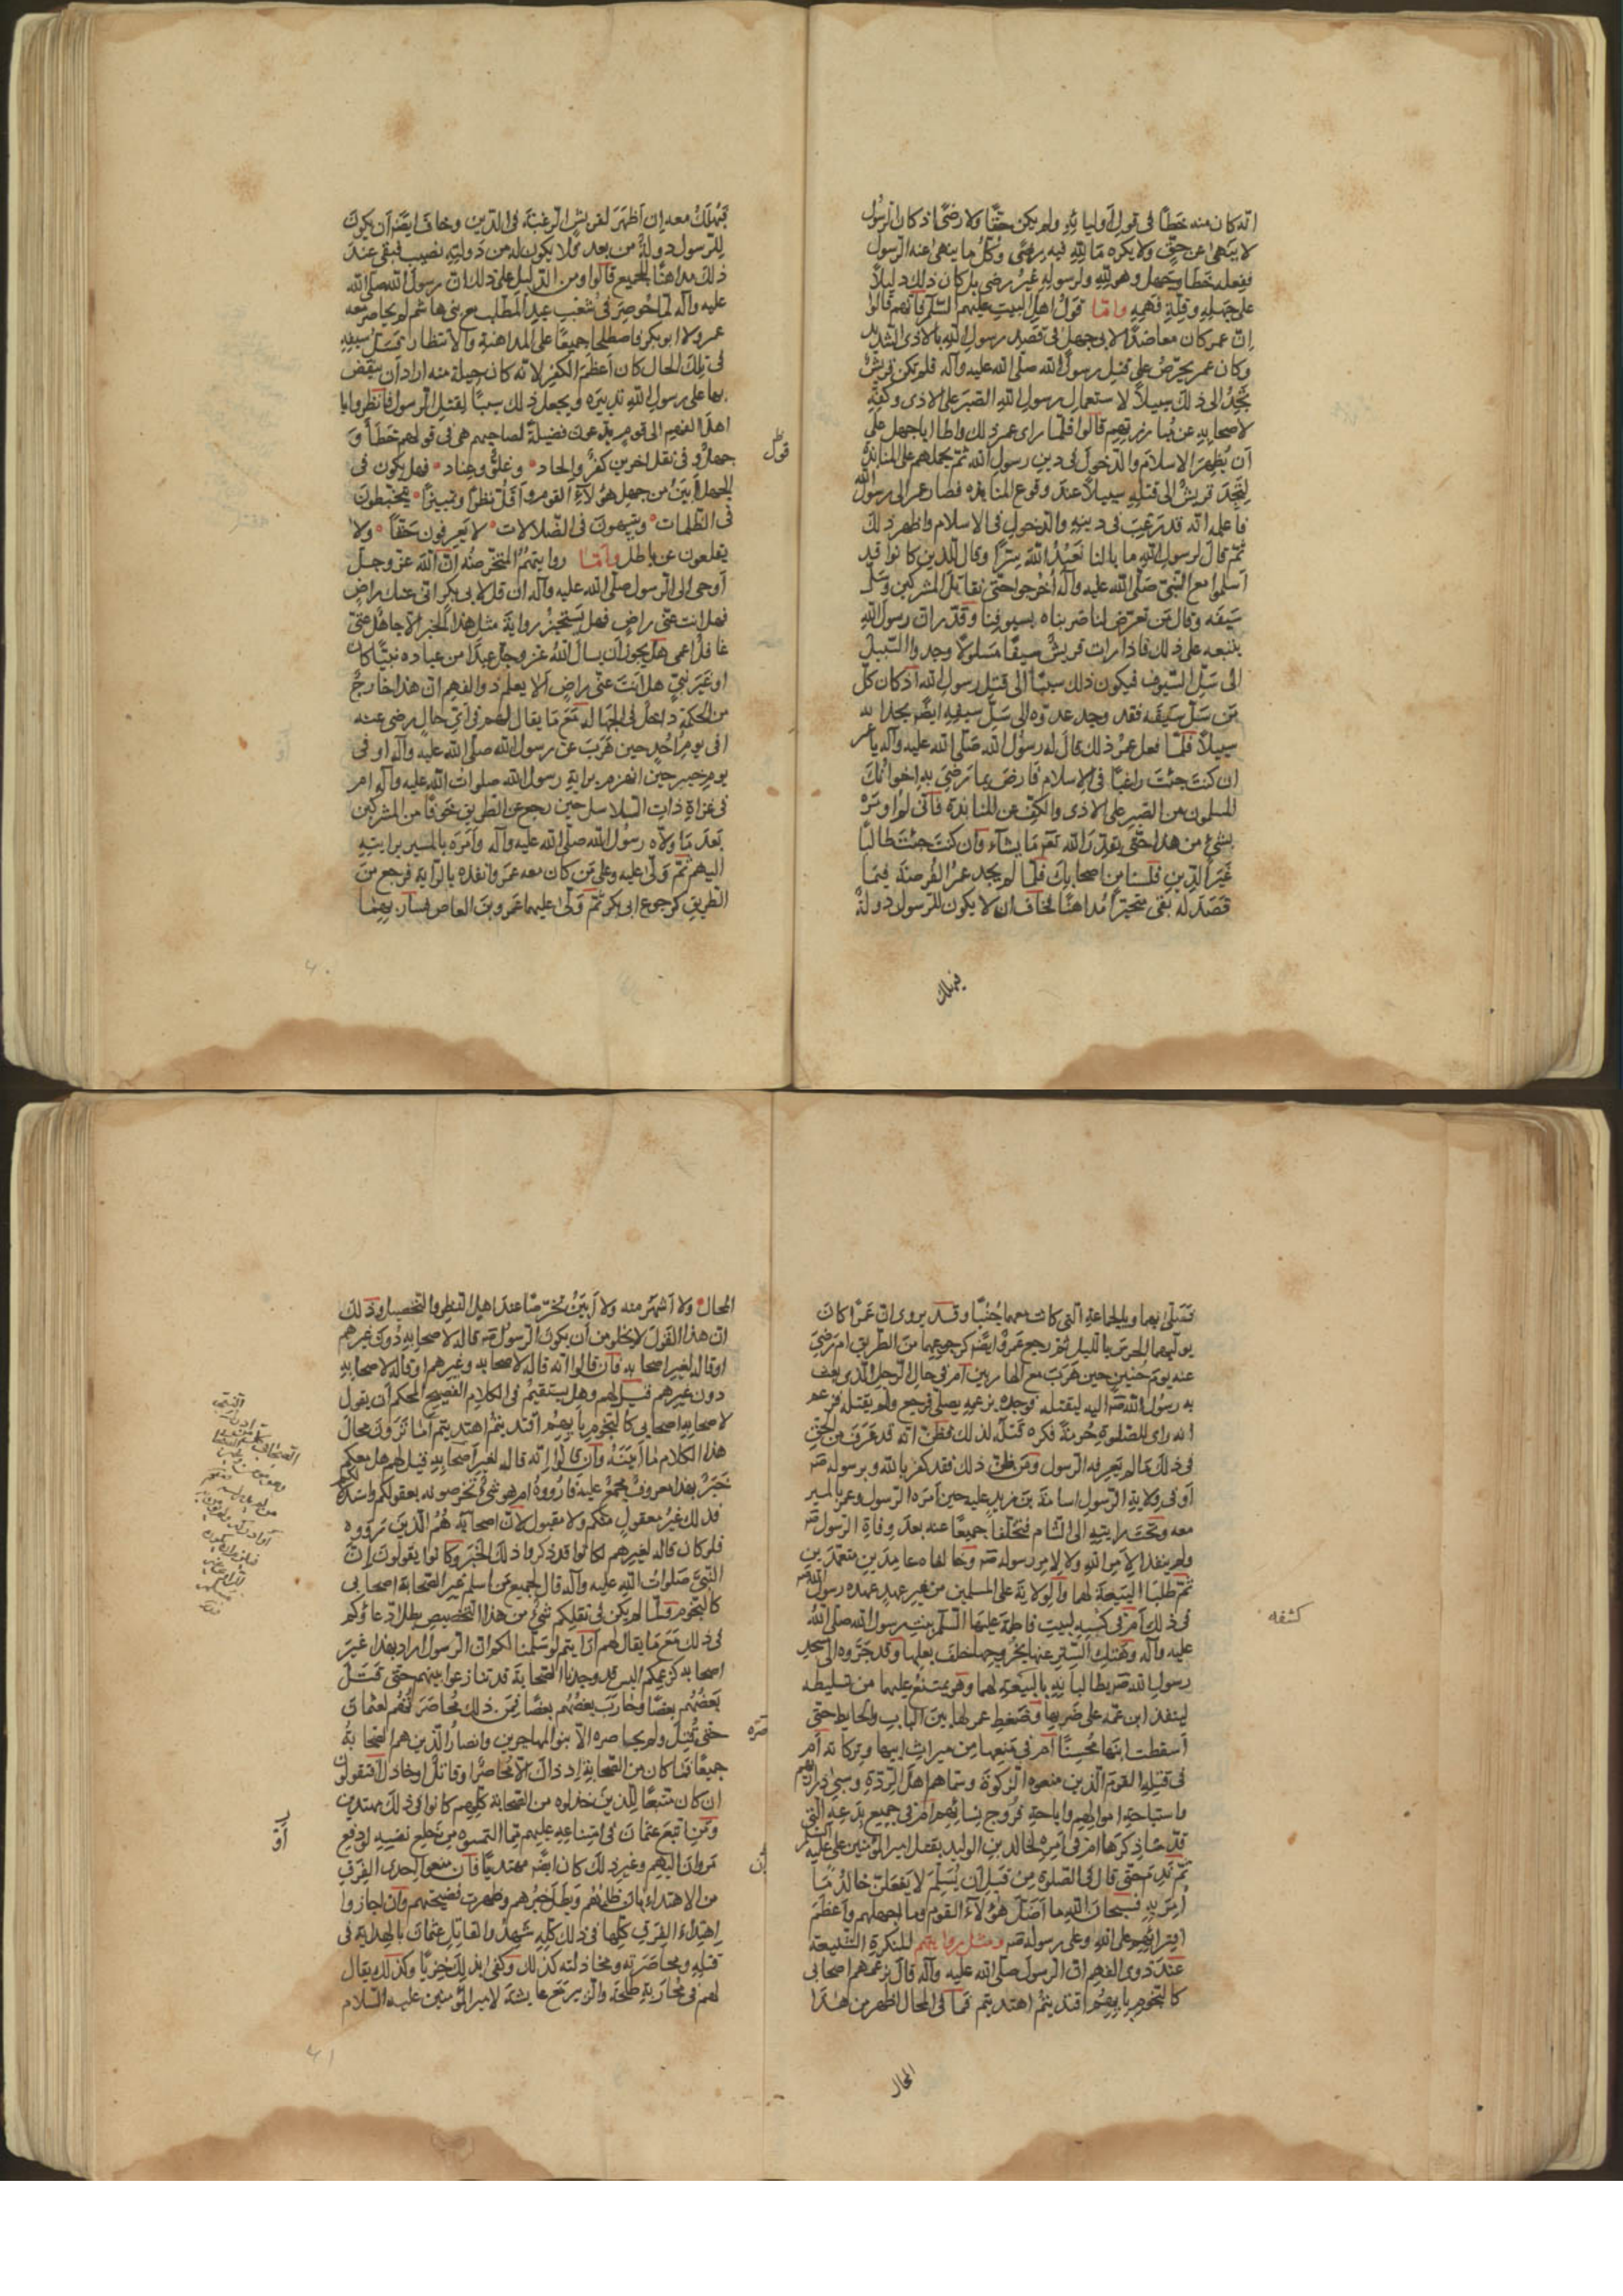 انه كان منه خطأ فى قول اوليائه ولم يكن حقّا ولا رضًى اذ كان الرّسول
لا ينهى عن حقّ ولا يكره ما لله فيه رضى وكلّ ما ينهى عنه الرّسول
ففعله خطأ وجهل وهو لله ولرسوله غير رضى بل كان ذلك دليلاً
على جهله وقلّة فهمه وامّا قول اهل البيت عليهم السّلم فانهم قالوا
انّ عمر كان معاضدًا لابى جهل فى قصد رسول الله بالاذى الشديد
وكان عمر يحرّض على قتل رسول الله صلّى الله عليه وآله فلم تكن قريش
تجد الى ذلك سبيلاً لاستعمال رسول الله الصّبر على الاذى وكفّه
لاصحابه عن مبارزتهم قالوا فلمّا راى عمر ذلك واطا ابا جهل على
أن يُظهر الاسلام والدّخول فى دين رسول الله ثمّ يحملهم على المنابذة
لتجد قريش الى قتله سبيلاً عند وقوع المنابذه فصار عمر الى رسول الله
فاعلمه انّه قد رغب فى دينه والدخول فى الاسلام واظهر ذلك
ثمّ قال لرسول الله ما بالنا نعبد الله سرّا وقال للّذين كانوا قد
أسلموا مع النّبىّ صلّى الله عليه وآله اُخرجوا حتّى نقاتل المشركين وسلّ
سيفه وقال من تعرّض لنا ضربناه بسيوفنا وقدّر انّ رسول الله
يتّبعه على ذلك فاذا رات قريش سيفًا مسلولاً وجدوا السّبيل
الى سلّ السّيوف فيكون ذلك سببًا الى قتل رسول الله اذ كان كلّ
من سلّ سيفه فقد وجد عدوّه الى سلّ سيفه ايضًا
سبيلاً فلمّا فعل عمر ذلك قال له رسول الله صلّى الله عليه وآله يا عمر
ان كنت جئت راغبًا فى الاسلام فارض بما رضى به اخوانك
المسلمون من الصّبر على الاذى والكفّ عن المنابذة فانّى لم اومر
بشئ من هذا حتّى يقدّر الله تع ما يشآء وان كنت جئت طالبًا
غير الدّين فلسنا من اصحابك فلمّا لم يجد عمر الفرصة فيما
قصد له بقى متحيّرًا مداهنًا فخاف ان لا يكون للرّسول دولةٌ
فيهلك
فيهلك معه إن أظهر لقريش الرّغبة فى الدّين وخاف ايضًا أن يكون
للرّسول دولة من بعد فلا يكون له من دولته نصيب فبقى عند
ذلك مداهنًا للجميع قالوا ومن الدّليل على ذلك انّ رسول الله صلّى الله
عليه وآله لمّا حوصر فى شعب عبد المطّلب مع بنى هاشم لم يحاصر معه
عمر ولا ابو بكر فاصطلحا جميعًا على المداهنة والانتظار فسلّ سيفه
فى تلك الحال كان أعظم الكفر لانّه كان حيلة منه اراد أن ينقض
بها على رسول الله تدبيره ويجعل ذلك سببًا لقتل الرّسول فانظروا يا
اهل الفهم الى قوم يدّعون فضيلةً لصاحبهم هى فى قولهم خطأ و
جهل و فى نقل اخرين كفر والحاد وغلوّ وعناد فهل يكون فى
قول
الجهل أبين من جهل هؤلآء القوم و أقلّ نظرًا وتمييزًا يتخبّطون
فى الظّلمات ويتيهون فى الضّلالات لا يعرفون حقّاً ولا
يقلعون عن باطل وامّا روايتهم المتخرّصة انّ الله عزّ وجلّ
أوحى الى الرّسول صلّى الله عليه وآله ان قل لابى بكر انّى عنك راضٍ
فهل انت عنّى راضٍ فهل يستجيز رواية مثل هذا الخبر الا جاهل غبىّ
غافل اعمى هل يجوز أن يسال الله عزّ وجلّ عبدًا من عباده نبيًّا كان
او غير نبىّ هل انت عنّى راضٍ ألا يعلم ذوالفهم انّ هذا خارج
من الحكمة داخل فى الجهاله مع ما يقال لهم فى أىّ حال رضى عنه
افى يوم اُحد حين هرب عن رسول الله صلى الله عليه وآله او فى
يوم خيبر حين انهزم براية رسول الله صلوات الله عليه وآله ام
فى غزاة ذات السّلاسل حين رجع عن الطّريق خوفًا من المشركين
بعد ما ولاّه رسول الله صلّى الله عليه وآله وأمره بالمسير برايته
اليهم ثمّ ولّى عليه وعلى من كان معه عمر وانفذه بالرّاية فرجع من
الطّريق كرجوع ابى بكر ثمّ ولّى عليهما عمرو بن العاص فسار بهما
٤٠
فصلّى بهما وبالجماعة الّتى كانت معهما جُنُبًا وقد يروى انّ عمرًا كان
يوليهما الحرس بالليل ثمّ رجع عمرو ايضًا كرجوعهما من الطّريق ام رضى
عنه يوم حُنين حين هرب مع الهاربين أم فى حال الرّجل الّذى بعث
به رسول الله اليه ليقتله فوجده بزعمه يصلّى فرجع ولم يقتله فزعم
انه راى للصّلوة حُرمةً فكره قتله لذلك فظنّ انّه قد عرف من الحقّ
فى ذلك ما لم يعرفه الرّسول ومن ظنّ ذلك فقد كفر بالله وبرسوله
أو فى ولاية الرّسول اسامة بن زيد عليه حين أمره الرّسول وعمر بالمسير
معه وتحت رايته الى الشّام فتخلّفا جميعًا عنه بعد وفاة الرّسول
ولم ينفذا لأمر الله ولا لامر رسوله وخالفاه عامدين متعمّدين
ثمّ طلبا البيعة لهما والولاية على المسلمين من غير عهد عهده رسول الله
فى ذلك أم فى كبسه لبيت فاطمة عليها السّلم بنت رسول الله صلّى الله
كشفه
عليه وآله وهتك السّتر عنها بخروجها خلف بعلها وقد جرّوه الى مسجد
رسول الله يطالبانه بالبيعة لهما وهو يمتنع عليهما من تسليطه
لينفذ ابن عمّه على ضربها وضغط عمر لها بين الباب والحايط حتّى
أسقطت ابنها مُحسنًا أم فى منعها من ميراث ابيها وتركاته أم
فى قتله القوم الّذين منعوه الزّكوة وسمّاهم اهل الرّدّة وسبى ذراريهم
واستباحة اموالهم واباحة فروج نسائهم ام فى جميع بدعه الّتى
قدّمنا ذكرها ام فى امره لخالد بن الوليد بقتل امير المؤمنين على عليه السّلم
ثمّ ندم حتّى قال فى الصّلوة من قبل ان يُسلّم لا يفعلنّ خالد ما
اُمر به فسبحان الله ما أضلّ هؤلآء القوم وما اجهلهم وأعظم
افترائهم على الله وعلى رسوله ومثل روايتهم المنكرة الشّنيعة
عند ذوى الفهم انّ الرّسول صلّى الله عليه وآله قال بزعمهم اصحابى
كالنّجوم بايّهم اقتديتم اهتديتم فما فى المحال اظهر من هذا
المحال
المحال ولا أشهر منه ولا أبين تخرّصًا عند اهل النّظر والتّحصيل وذلك
انّ هذا القول لا يخلو من أن يكون الرّسول قاله لاصحابه دون غيرهم
او قاله لغير اصحابه فان قالوا انّه قاله لاصحابه وغيرهم او قاله لاصحابه
دون غيرهم قيل لهم وهل يستقيم فى الكلام الفصيح المحكم أن يقول
لاصحابه اصحابى كالنّجوم بايّهم اقتديتم اهتديتم أما ترون محال
هذا الكلام ما أبينه وان قالوا انّه قاله لغير أصحابه قيل لهم هل معكم
خبر بهذا معروف مجمع عليه فاروُوه ام هو شئ تخرّصونه بعقولكم
فذلك غير معقول منكم ولا مقبول لانّ اصحابه هم الّذين رووه
فلو كان قاله لغيرهم لكانوا قد ذكروا ذلك الخبر وكانوا يقولون انّ
النّبىّ صلوات الله عليه وآله قال لجميع من اسلم غير الصّحابة اصحابى
كالنّجوم فلمّا لم يكن فى نقلكم شئ من هذا التّخصيص بطل ادّعاؤكم
فى ذلك مع ما يقال لهم أرايتم لو سلّمنا لكم انّ الرّسول اراد بهذا غير
اصحابه كزعمكم اليس قد وجدنا الصّحابة قد تنازعوا بينهم حتّى قتل
بعضهم بعضًا وحارب بعضهم بعضًا فمن ذلك محاصرتهم لعثمان
حتّى قتل ولم يحاصره الاّ بنو المهاجرين وانصار الّذين هم الصّحابة
جميعًا فما كان من الصّحابة اذ ذاك الا محاصرًا وقاتل او خاذل افتقولون
ان كان متّبعًا للّذين خذلوه من الصّحابة كلّهم كانوا فى ذلك مهتدين
ومن اتّبع عثمان فى امتناعه عليهم فيما التمسوه من خلع نفسه او دفع
مروان اليهم وغير ذلك كان ايضًا مهتديًا فان منعوا احدى الفرق
من الاهتداء بان ظلمهم وبطل خبرهم وظهرت فضيحتهم وان اجازوا
اهتداء الفرق كلّها فى ذلك كلّه شهدوا لقاتل عثمان بالهداية فى
قتله ومحاصرته ومخاذلته كذلك وكفى بذلك خزيًا وكذلك يقال
لهم فى محاربة طلحة والزّبير مع عايشة لامير المؤمنين عليه السّلام
٤١